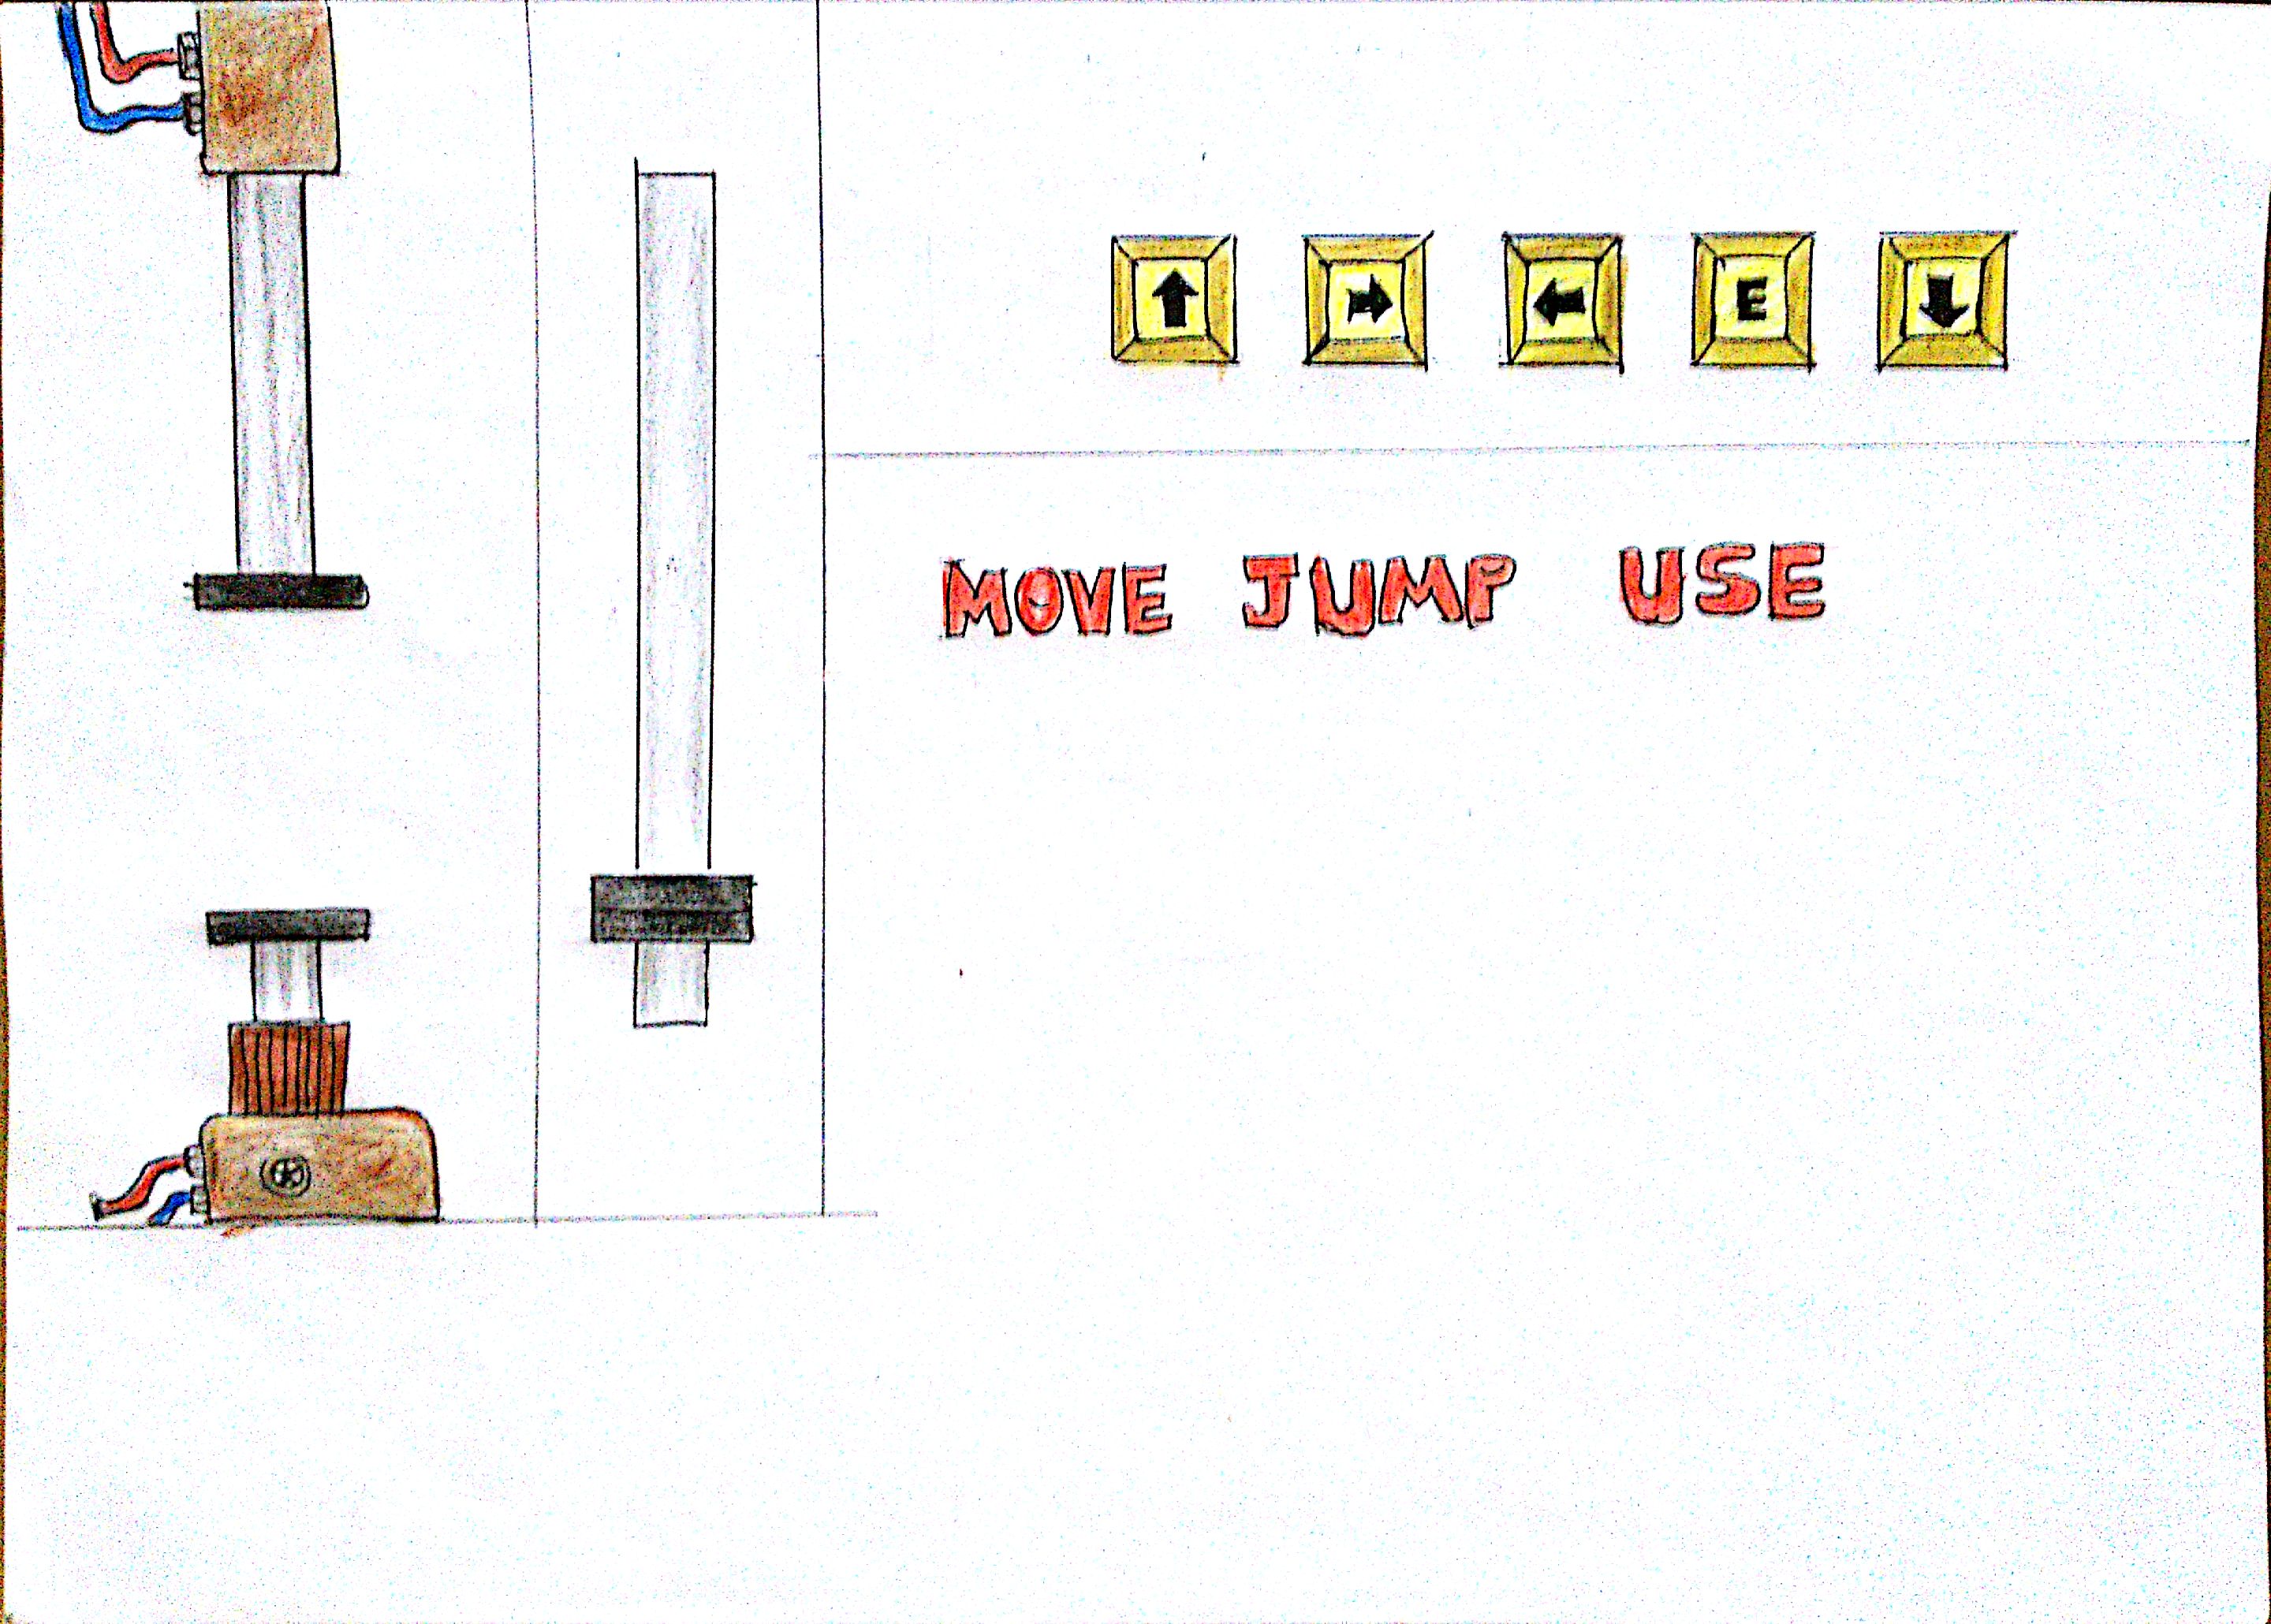 E
MOVE JUMP USE